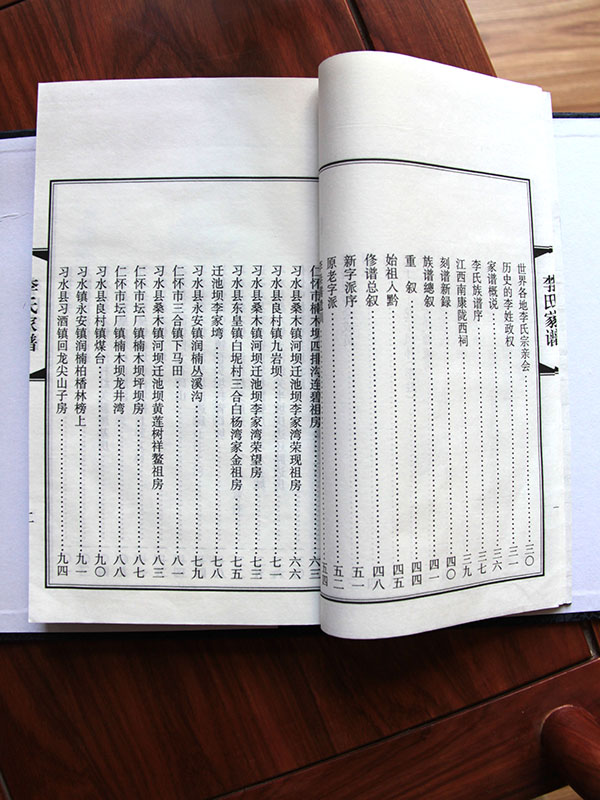 李氏家谱
世界各地李氏宗亲会……三〇
历史的李姓政权……三一
家谱概说……三六
李氏族谱序……三七
江西南康陇西祠……三九
刻谱新録……四〇
族谱總叙……四一
重 叙……四四
始祖入黔……四五
修谱总叙……四八
新字派序……五一
原老字派……五二
五四
仁怀市楠木坝四排沟连碧祖房……六三
习水县桑木镇河坝迁池坝李家湾荣现祖房……六六
习水县良村镇九岩坝……七一
习水县桑木镇河坝迁池坝李家湾荣望房……七三
习水县东皇镇白坭村三合白杨湾家金祖房……七五
迁池坝李家塆……七八
习水县永安镇润楠丛溪沟……七九
仁怀市三合镇下马田……八一
习水县桑木镇河坝迁池坝黄莲树祥鳌祖房……八三
仁怀市坛厂镇楠木坝坪坝房……八七
仁怀市坛厂镇楠木坝龙井湾……八八
习水县良村镇煤台……九〇
习水镇永安镇润楠柏樯林榜上……九一
习水县习酒镇回龙尖山子房……九四
李氏家谱